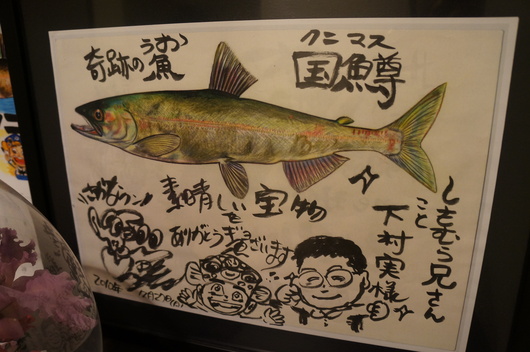 奇跡の魚
うお
クニマス
国鱒
さかなクン
素晴しい宝物を
ありがとうございます
しもむら兄さん
こと
下村実様
2010年